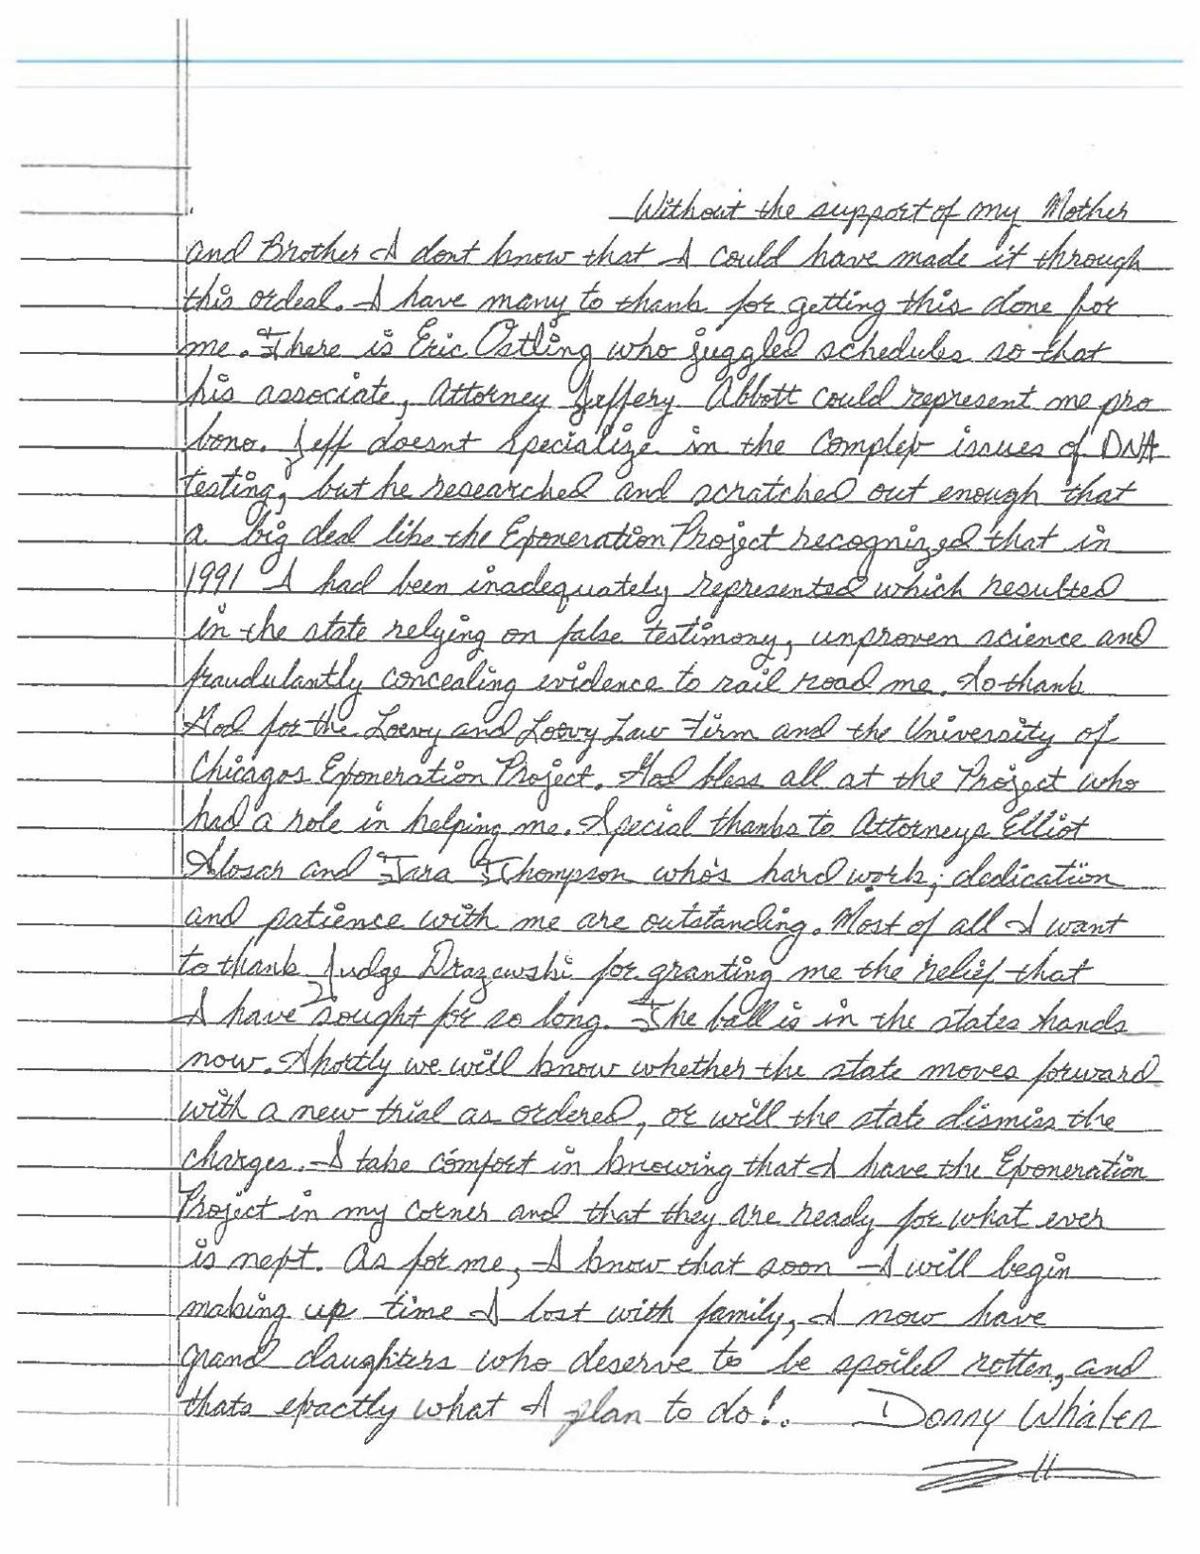 Without the support of my Mother
and Brother I dont know that I could have made it through
this ordeal. I have many to thank for getting this done for
me. There is Eric Ostling who juggled schedules so that
his associate, Attorney Jeffery Abbott could represent me pro
bono. Jeff doesnt specialize in the complex issues of DNA
testing, but he researched and scratched out enough that
a big deal like the Exoneration Project recognized that in
1991 I had been inadequately represented which resulted
in the state relying on false testimony, unproven science and
fraudulantly concealing evidence to rail road me. So thank
God for the Loevy and Loevy Law Firm and the University of
Chicagos Exoneration Project. God bless all at the Project who
had a role in helping me. Special thanks to Attorneys Elliot
Slosar and Tara Thompson who's hard work, dedication
and patience with me are outstanding. Most of all I want
to thank Judge Drazewski for granting me the relief that
I have sought for so long. The ball is in the states hands
now. Shortly we will know whether the state moves forward
with a new trial as ordered, or will the state dismiss the
charges. I take comfort in knowing that I have the Exoneration
Project in my corner and that they are ready for what ever
is next. As for me, I know that soon I will begin
making up time I lost with family, I now have
grand daughters who deserve to be spoiled rotten, and
thats exactly what I plan to do!. Donny Whalen